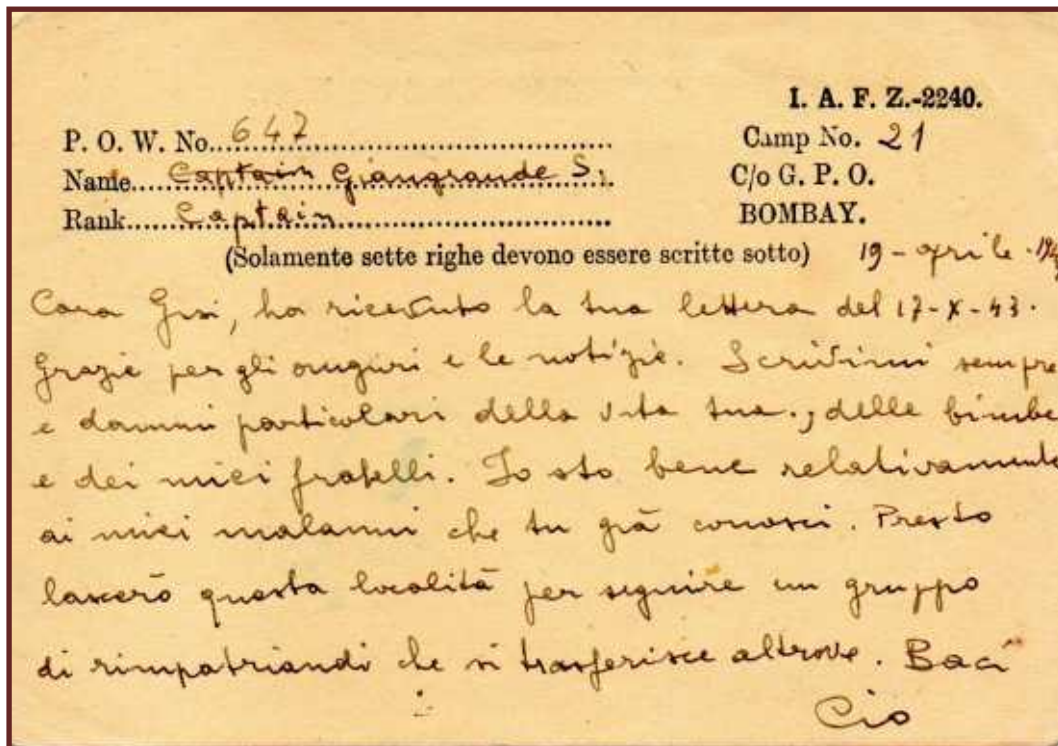 I. A. F. Z.-2240.
P. O. W. No. 647 Camp No. 21
Name Captain Giangrande S. C/o G. P. O.
Rank Captain BOMBAY.
(Solamente sette righe devono essere scritte sotto) 19 - aprile -
Cara Gisi, ho ricevuto la tua lettera del 17-X-43.
Grazie per gli auguri e le notizie. Scrivimi sempre
e dammi particolari della vita tua, delle bimbe
e dei miei fratelli. Io sto bene relativamente
ai miei malanni che tu già conosci. Presto
lascerò questa località per seguire un gruppo
di rimpatriandi che si trasferisce altrove. Baci
Cio